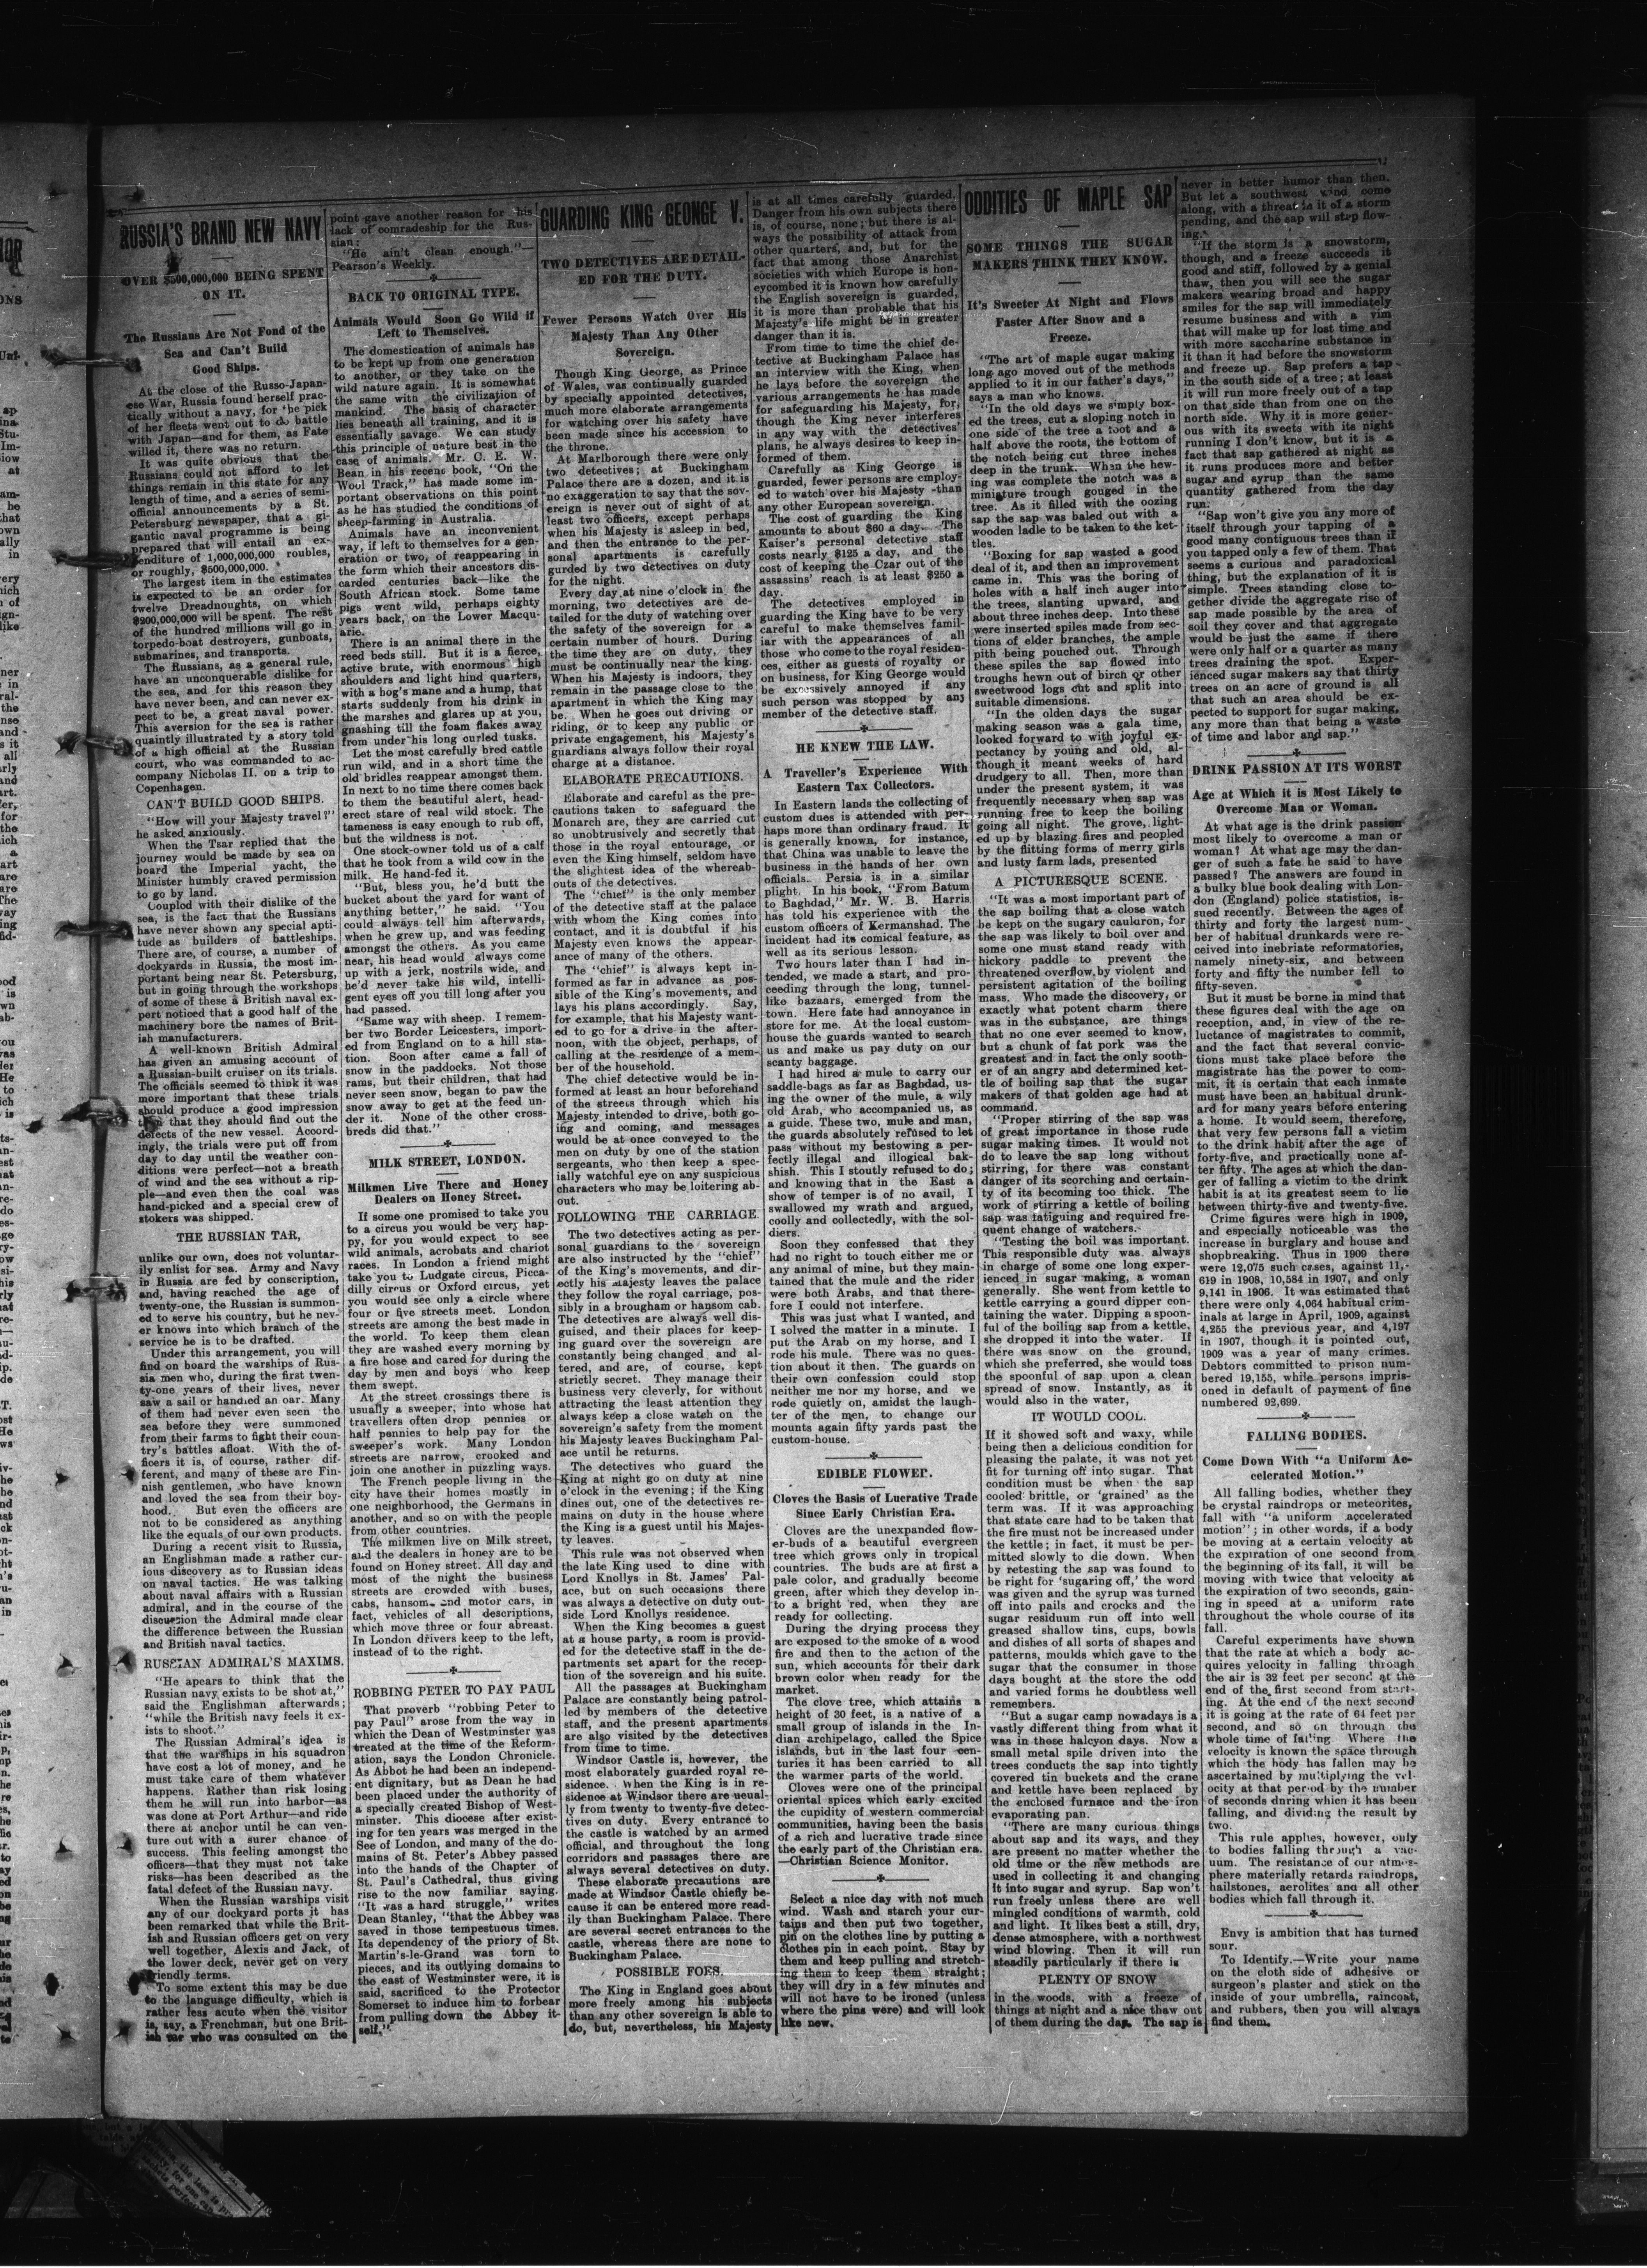 RUSSIA'S BRAND NEW NAVY
OVER $500,000,000 BEING SPENT
ON IT.
The Russians Are Not Fond of the
Sea and Can't Build
Good Ships.
At the close of the Russo-Japan-
ese War, Russia found herself prac-
tically without a navy, for the pick
of her fleets went out to do battle
with Japan—and for them, as Fate
willed it, there was no return.
It was quite obvious that the
Russians could not afford to let
things remain in this state for any
length of time, and a series of semi-
official announcements by a St.
Petersburg newspaper, that a gi-
gantic naval programme is being
prepared that will entail an ex-
penditure of 1,000,000,000 roubles,
or roughly, $500,000,000.
The largest item in the estimates
is expected to be an order for
twelve Dreadnoughts, on which
$200,000,000 will be spent. The rest
of the hundred millions will go in
torpedo-boat destroyers, gunboats,
submarines, and transports.
The Russians, as a general rule,
have an unconquerable dislike for
the sea, and for this reason they
have never been, and can never ex-
pect to be, a great naval power.
This aversion for the sea is rather
quaintly illustrated by a story told
of a high official at the Russian
court, who was commanded to ac-
company Nicholas II. on a trip to
Copenhagen.
CAN'T BUILD GOOD SHIPS.
"How will your Majesty travel?"
he asked anxiously.
When the Tsar replied that the
journey would be made by sea on
board the Imperial yacht, the
Minister humbly craved permission
to go by land.
Coupled with their dislike of the
sea, is the fact that the Russians
have never shown any special apti-
tude as builders of battleships.
There are, of course, a number of
dockyards in Russia, the most im-
portant being near St. Petersburg,
but in going through the workshops
of some of these a British naval ex-
pert noticed that a good half of the
machinery bore the names of Brit-
ish manufacturers.
A well-known British Admiral
has given an amusing account of
a Russian-built cruiser on its trials.
The officials seemed to think it was
more important that these trials
should produce a good impression
than that they should find out the
defects of the new vessel. Accord-
ingly, the trials were put off from
day to day until the weather con-
ditions were perfect—not a breath
of wind and the sea without a rip-
ple—and even then the coal was
hand-picked and a special crew of
stokers was shipped.
THE RUSSIAN TAR,
unlike our own, does not voluntar-
ily enlist for sea. Army and Navy
in Russia are fed by conscription,
and, having reached the age of
twenty-one, the Russian is summon-
ed to serve his country, but he nev-
er knows into which branch of the
service he is to be drafted.
Under this arrangement, you will
find on board the warships of Rus-
sia men who, during the first twen-
ty-one years of their lives, never
saw a sail or handled an oar. Many
of them had never even seen the
sea before they were summoned
from their farms to fight their coun-
try's battles afloat. With the of-
ficers it is, of course, rather dif-
ferent, and many of these are Fin-
nish gentlemen, who have known
and loved the sea from their boy-
hood. But even the officers are
not to be considered as anything
like the equals of our own products.
During a recent visit to Russia,
an Englishman made a rather cur-
ious discovery as to Russian ideas
on naval tactics. He was talking
about naval affairs with a Russian
admiral, and in the course of the
discussion the Admiral made clear
the difference between the Russian
and British naval tactics.
RUSSIAN ADMIRAL'S MAXIMS.
"He apears to think that the
Russian navy exists to be shot at,"
said the Englishman afterwards;
"while the British navy feels it ex-
ists to shoot."
The Russian Admiral's idea is
that the warships in his squadron
have cost a lot of money, and he
must take care of them whatever
happens. Rather than risk losing
them he will run into harbor—as
was done at Port Arthur—and ride
there at anchor until he can ven-
ture out with a surer chance of
success. This feeling amongst the
officers—that they must not take
risks—has been described as the
fatal defect of the Russian navy.
When the Russian warships visit
any of our dockyard ports it has
been remarked that while the Brit-
ish and Russian officers get on very
well together, Alexis and Jack, of
the lower deck, never get on very
friendly terms.
To some extent this may be due
to the language difficulty, which is
rather less acute when the visitor
is, say, a Frenchman, but one Brit-
ish tar who was consulted on the
point gave another reason for his
lack of comradeship for the Rus-
sian:
"He ain't clean enough."—
Pearson's Weekly.
BACK TO ORIGINAL TYPE.
Animals Would Soon Go Wild if
Left to Themselves.
The domestication of animals has
to be kept up from one generation
to another, or they take on the
wild nature again. It is somewhat
the same with the civilization of
mankind. The basis of character
lies beneath all training, and it is
essentially savage. We can study
this principle of nature best in the
case of animals. Mr. C. E. W.
Bean in his recent book, "On the
Wool Track," has made some im-
portant observations on this point
as he has studied the conditions of
sheep-farming in Australia.
Animals have an inconvenient
way, if left to themselves for a gen-
eration or two, of reappearing in
the form which their ancestors dis-
carded centuries back—like the
South African stock. Some tame
pigs went wild, perhaps eighty
years back, on the Lower Macqu-
arie.
There is an animal there in the
reed beds still. But it is a fierce,
active brute, with enormous high
shoulders and light hind quarters,
with a hog's mane and a hump, that
starts suddenly from his drink in
the marshes and glares up at you,
gnashing till the foam flakes away
from under his long curled tusks.
Let the most carefully bred cattle
run wild, and in a short time the
old bridles reappear amongst them.
In next to no time there comes back
to them the beautiful alert, head-
erect stare of real wild stock. The
tameness is easy enough to rub off,
but the wildness is not.
One stock-owner told us of a calf
that he took from a wild cow in the
milk. He hand-fed it.
"But, bless you, he'd butt the
bucket about the yard for want of
anything better," he said. "You
could always tell him afterwards,
when he grew up, and was feeding
amongst the others. As you came
near, his head would always come
up with a jerk, nostrils wide, and
he'd never take his wild, intelli-
gent eyes off you till long after you
had passed.
"Same way with sheep. I remem-
ber two Border Leicesters, import-
ed from England on to a hill sta-
tion. Soon after came a fall of
snow in the paddocks. Not those
rams, but their children, that had
never seen snow, began to paw the
snow away to get at the feed un-
der it. None of the other cross-
breds did that."
MILK STREET, LONDON.
Milkmen Live There and Honey
Dealers on Honey Street.
If some one promised to take you
to a circus you would be very hap-
py, for you would expect to see
wild animals, acrobats and chariot
races. In London a friend might
take you to Ludgate circus, Picca-
dilly circus or Oxford circus, yet
you would see only a circle where
four or five streets meet. London
streets are among the best made in
the world. To keep them clean
they are washed every morning by
a fire hose and cared for during the
day by men and boys who keep
them swept.
At the street crossings there is
usually a sweeper, into whose hat
travellers often drop pennies or
half pennies to help pay for the
sweeper's work. Many London
streets are narrow, crooked and
join one another in puzzling ways.
The French people living in the
city have their homes mostly in
one neighborhood, the Germans in
another, and so on with the people
from other countries.
The milkmen live on Milk street,
and the dealers in honey are to be
found on Honey street. All day and
most of the night the business
streets are crowded with buses,
cabs, hansoms and motor cars, in
fact, vehicles of all descriptions,
which move three or four abreast.
In London drivers keep to the left,
instead of to the right.
ROBBING PETER TO PAY PAUL
That proverb "robbing Peter to
pay Paul" arose from the way in
which the Dean of Westminster was
treated at the time of the Reform-
ation, says the London Chronicle.
As Abbot he had been an independ-
ent dignitary, but as Dean he had
been placed under the authority of
a specially created Bishop of West-
minster. This diocese after exist-
ing for ten years was merged in the
See of London, and many of the do-
mains of St. Peter's Abbey passed
into the hands of the Chapter of
St. Paul's Cathedral, thus giving
rise to the now familiar saying.
"It was a hard struggle," writes
Dean Stanley, "that the Abbey was
saved in those tempestuous times.
Its dependency of the priory of St.
Martin's-le-Grand was torn to
pieces, and its outlying domains to
the east of Westminster were, it is
said, sacrificed to the Protector
Somerset to induce him to forbear
from pulling down the Abbey it-
self."
GUARDING KING GEONGE V.
TWO DETECTIVES ARE DETAIL-
ED FOR THE DUTY.
Fewer Persons Watch Over His
Majesty Than Any Other
Sovereign.
Though King George, as Prince
of Wales, was continually guarded
by specially appointed detectives,
much more elaborate arrangements
for watching over his safety have
been made since his accession to
the throne.
At Marlborough there were only
two detectives; at Buckingham
Palace there are a dozen, and it is
no exaggeration to say that the sov-
ereign is never out of sight of at
least two officers, except perhaps
when his Majesty is asleep in bed,
and then the entrance to the per-
sonal apartments is carefully
gurded by two detectives on duty
for the night.
Every day at nine o'clock in the
morning, two detectives are de-
tailed for the duty of watching over
the safety of the sovereign for a
certain number of hours. During
the time they are on duty, they
must be continually near the king.
When his Majesty is indoors, they
remain in the passage close to the
apartment in which the King may
be. When he goes out driving or
riding, or to keep any public or
private engagement, his Majesty's
guardians always follow their royal
charge at a distance.
ELABORATE PRECAUTIONS.
Elaborate and careful as the pre-
cautions taken to safeguard the
Monarch are, they are carried out
so unobtrusively and secretly that
those in the royal entourage, or
even the King himself, seldom have
the slightest idea of the whereab-
outs of the detectives.
The "chief" is the only member
of the detective staff at the palace
with whom the King comes into
contact, and it is doubtful if his
Majesty even knows the appear-
ance of many of the others.
The "chief" is always kept in-
formed as far in advance as pos-
sible of the King's movements, and
lays his plans accordingly. Say,
for example, that his Majesty want-
ed to go for a drive in the after-
noon, with the object, perhaps, of
calling at the residence of a mem-
ber of the household.
The chief detective would be in-
formed at least an hour beforehand
of the streets through which his
Majesty intended to drive, both go-
ing and coming, and messages
would be at once conveyed to the
men on duty by one of the station
sergeants, who then keep a spec-
ially watchful eye on any suspicious
characters who may be loitering ab-
out.
FOLLOWING THE CARRIAGE.
The two detectives acting as per-
sonal guardians to the sovereign
are also instructed by the "chief"
of the King's movements, and dir-
ectly his majesty leaves the palace
they follow the royal carriage, pos-
sibly in a brougham or hansom cab.
The detectives are always well dis-
guised, and their places for keep-
ing guard over the sovereign are
constantly being changed and al-
tered, and are, of course, kept
strictly secret. They manage their
business very cleverly, for without
attracting the least attention they
always keep a close watch on the
sovereign's safety from the moment
his Majesty leaves Buckingham Pal-
ace until he returns.
The detectives who guard the
King at night go on duty at nine
o'clock in the evening; if the King
dines out, one of the detectives re-
mains on duty in the house where
the King is a guest until his Majes-
ty leaves.
This rule was not observed when
the late King used to dine with
Lord Knollys in St. James' Pal-
ace, but on such occasions there
was always a detective on duty out-
side Lord Knollys residence.
When the King becomes a guest
at a house party, a room is provid-
ed for the detective staff in the de-
partments set apart for the recep-
tion of the sovereign and his suite.
All the passages at Buckingham
Palace are constantly being patrol-
led by members of the detective
staff, and the present apartments
are also visited by the detectives
from time to time.
Windsor Castle is, however, the
most elaborately guarded royal re-
sidence. When the King is in re-
sidence at Windsor there are usual-
ly from twenty to twenty-five detec-
tives on duty. Every entrance to
the castle is watched by an armed
official, and throughout the long
corridors and passages there are
always several detectives on duty.
These elaborate precautions are
made at Windsor Castle chiefly be-
cause it can be entered more read-
ily than Buckingham Palace. There
are several secret entrances to the
castle, whereas there are none to
Buckingham Palace.
POSSIBLE FOES.
The King in England goes about
more freely among his subjects
than any other sovereign is able to
do, but, nevertheless, his Majesty
is at all times carefully guarded.
Danger from his own subjects there
is, of course, none; but there is al-
ways the possibility of attack from
other quarters, and, but for the
fact that among those Anarchist
societies with which Europe is hon-
eycombed it is known how carefully
the English sovereign is guarded,
it is more than probable that his
Majesty's life might be in greater
danger than it is.
From time to time the chief de-
tective at Buckingham Palace has
an interview with the King, when
he lays before the sovereign the
various arrangements he has made
for safeguarding his Majesty, for,
though the King never interferes
in any way with the detectives'
plans, he always desires to keep in-
formed of them.
Carefully as King George is
guarded, fewer persons are employ-
ed to watch over his Majesty than
any other European sovereign.
The cost of guarding the King
amounts to about $60 a day. The
Kaiser's personal detective staff
costs nearly $125 a day, and the
cost of keeping the Czar out of the
assassins' reach is at least $250 a
day.
The detectives employed in
guarding the King have to be very
careful to make themselves famil-
iar with the appearances of all
those who come to the royal residen-
ces, either as guests of royalty or
on business, for King George would
be excessively annoyed if any
such person was stopped by any
member of the detective staff.
HE KNEW THE LAW.
A Traveller's Experience With
Eastern Tax Collectors.
In Eastern lands the collecting of
custom dues is attended with per-
haps more than ordinary fraud. It
is generally known, for instance,
that China was unable to leave the
business in the hands of her own
officials. Persia is in a similar
plight. In his book, "From Batum
to Baghdad," Mr. W. B. Harris
has told his experience with the
custom officers of Kermanshad. The
incident had its comical feature, as
well as its serious lesson.
Two hours later than I had in-
tended, we made a start, and pro-
ceeding through the long, tunnel-
like bazaars, emerged from the
town. Here fate had annoyance in
store for me. At the local custom-
house the guards wanted to search
us and make us pay duty on our
scanty baggage.
I had hired a mule to carry our
saddle-bags as far as Baghdad, us-
ing the owner of the mule, a wily
old Arab, who accompanied us, as
a guide. These two, mule and man,
the guards absolutely refused to let
pass without my bestowing a per-
fectly illegal and illogical bak-
shish. This I stoutly refused to do;
and knowing that in the East a
show of temper is of no avail, I
swallowed my wrath and argued,
coolly and collectedly, with the sol-
diers.
Soon they confessed that they
had no right to touch either me or
any animal of mine, but they main-
tained that the mule and the rider
were both Arabs, and that there-
fore I could not interfere.
This was just what I wanted, and
I solved the matter in a minute. I
put the Arab on my horse, and I
rode his mule. There was no ques-
tion about it then. The guards on
their own confession could stop
neither me nor my horse, and we
rode quietly on, amidst the laugh-
ter of the men, to change our
mounts again fifty yards past the
custom-house.
EDIBLE FLOWER.
Cloves the Basis of Lucrative Trade
Since Early Christian Era.
Cloves are the unexpanded flow-
er-buds of a beautiful evergreen
tree which grows only in tropical
countries. The buds are at first a
pale color, and gradually become
green, after which they develop in-
to a bright red, when they are
ready for collecting.
During the drying process they
are exposed to the smoke of a wood
fire and then to the action of the
sun, which accounts for their dark
brown color when ready for the
market.
The clove tree, which attains a
height of 30 feet, is a native of a
small group of islands in the In-
dian archipelago, called the Spice
islands, but in the last four cen-
turies it has been carried to all
the warmer parts of the world.
Cloves were one of the principal
oriental spices which early excited
the cupidity of western commercial
communities, having been the basis
of a rich and lucrative trade since
the early part of the Christian era.
—Christian Science Monitor.
Select a nice day with not much
wind. Wash and starch your cur-
tains and then put two together,
pin on the clothes line by putting a
clothes pin in each point. Stay by
them and keep pulling and stretch-
ing them to keep them straight;
they will dry in a few minutes and
will not have to be ironed (unless
where the pins were) and will look
like new.
ODDITIES OF MAPLE SAP
SOME THINGS THE SUGAR
MAKERS THINK THEY KNOW.
It's Sweeter At Night and Flows
Faster After Snow and a
Freeze.
"The art of maple sugar making
long ago moved out of the methods
applied to it in our father's days,"
says a man who knows.
"In the old days we simply box-
ed the trees, cut a sloping notch in
one side of the tree a foot and a
half above the roots, the bottom of
the notch being cut three inches
deep in the trunk. When the hew-
ing was complete the notch was a
miniature trough gouged in the
tree. As it filled with the oozing
sap the sap was baled out with a
wooden ladle to be taken to the ket-
tles.
"Boxing for sap wasted a good
deal of it, and then an improvement
came in. This was the boring of
holes with a half inch auger into
the trees, slanting upward, and
about three inches deep. Into these
were inserted spiles made from sec-
tions of elder branches, the ample
pith being pouched out. Through
these spiles the sap flowed into
troughs hewn out of birch or other
sweetwood logs cut and split into
suitable dimensions.
"In the olden days the sugar
making season was a gala time,
looked forward to with joyful ex-
pectancy by young and old, al-
though it meant weeks of hard
drudgery to all. Then, more than
under the present system, it was
frequently necessary when sap was
running free to keep the boiling
going all night. The grove, light-
ed up by blazing fires and peopled
by the flitting forms of merry girls
and lusty farm lads, presented
A PICTURESQUE SCENE.
"It was a most important part of
the sap boiling that a close watch
be kept on the sugary cauldron, for
the sap was likely to boil over and
some one must stand ready with
hickory paddle to prevent the
threatened overflow by violent and
persistent agitation of the boiling
mass. Who made the discovery, or
exactly what potent charm there
was in the substance, are things
that no one ever seemed to know,
but a chunk of fat pork was the
greatest and in fact the only sooth-
er of an angry and determined ket-
tle of boiling sap that the sugar
makers of that golden age had at
command.
"Proper stirring of the sap was
of great importance in those rude
sugar making times. It would not
do to leave the sap long without
stirring, for there was constant
danger of its scorching and certain-
ty of its becoming too thick. The
work of stirring a kettle of boiling
sap was fatiguing and required fre-
quent change of watchers.
"Testing the boil was important.
This responsible duty was always
in charge of some one long exper-
ienced in sugar making, a woman
generally. She went from kettle to
kettle carrying a gourd dipper con-
taining the water. Dipping a spoon-
ful of the boiling sap from a kettle,
she dropped it into the water. If
there was snow on the ground,
which she preferred, she would toss
the spoonful of sap upon a clean
spread of snow. Instantly, as it
would also in the water,
IT WOULD COOL.
If it showed soft and waxy, while
being then a delicious condition for
pleasing the palate, it was not yet
fit for turning off into sugar. That
condition must be when the sap
cooled brittle, or 'grained' as the
term was. If it was approaching
that state care had to be taken that
the fire must not be increased under
the kettle; in fact, it must be per-
mitted slowly to die down. When
by retesting the sap was found to
be right for 'sugaring off,' the word
was given and the syrup was turned
off into pails and crocks and the
sugar residuum run off into well
greased shallow tins, cups, bowls
and dishes of all sorts of shapes and
patterns, moulds which gave to the
sugar that the consumer in those
days bought at the store the odd
and varied forms he doubtless well
remembers.
"But a sugar camp nowadays is a
vastly different thing from what it
was in those halcyon days. Now a
small metal spile driven into the
trees conducts the sap into tightly
covered tin buckets and the crane
and kettle have been replaced by
the enclosed furnace and the iron
evaporating pan.
"There are many curious things
about sap and its ways, and they
are present no matter whether the
old time or the new methods are
used in collecting it and changing
it into sugar and syrup. Sap won't
run freely unless there are well
mingled conditions of warmth, cold
and light. It likes best a still, dry,
dense atmosphere, with a northwest
wind blowing. Then it will run
steadily particularly if there is
PLENTY OF SNOW
in the woods, with a freeze of
things at night and a nice thaw out
of them during the day. The sap is
never in better humor than then.
But let a southwest wind come
along, with a threat in it of a storm
pending, and the sap will stop flow-
ing.
"If the storm is a snowstorm,
though, and a freeze succeeds it
good and stiff, followed by a genial
thaw, then you will see the sugar
makers wearing broad and happy
smiles for the sap will immediately
resume business and with a vim
that will make up for lost time and
with more saccharine substance in
it than it had before the snowstorm
and freeze up. Sap prefers a tap
in the south side of a tree; at least
it will run more freely out of a tap
on that side than from one on the
north side. Why it is more gener-
ous with its sweets with its night
running I don't know, but it is a
fact that sap gathered at night as
it runs produces more and better
sugar and syrup than the same
quantity gathered from the day
run.
"Sap won't give you any more of
itself through your tapping of a
good many contiguous trees than if
you tapped only a few of them. That
seems a curious and paradoxical
thing, but the explanation of it is
simple. Trees standing close to-
gether divide the aggregate rise of
sap made possible by the area of
soil they cover and that aggregate
would be just the same if there
were only half or a quarter as many
trees draining the spot. Exper-
ienced sugar makers say that thirty
trees on an acre of ground is all
that such an area should be ex-
pected to support for sugar making,
any more than that being a waste
of time and labor and sap."
DRINK PASSION AT ITS WORST
Age at Which it is Most Likely to
Overcome Man or Woman.
At what age is the drink passion
most likely to overcome a man or
woman? At what age may the dan-
ger of such a fate he said to have
passed? The answers are found in
a bulky blue book dealing with Lon-
don (England) police statistics, is-
sued recently. Between the ages of
thirty and forty the largest num-
ber of habitual drunkards were re-
ceived into inebriate reformatories,
namely ninety-six, and between
forty and fifty the number fell to
fifty-seven.
But it must be borne in mind that
these figures deal with the age on
reception, and, in view of the re-
luctance of magistrates to commit,
and the fact that several convic-
tions must take place before the
magistrate has the power to com-
mit, it is certain that each inmate
must have been an habitual drunk-
ard for many years before entering
a home. It would seem, therefore,
that very few persons fall a victim
to the drink habit after the age of
forty-five, and practically none af-
ter fifty. The ages at which the dan-
ger of falling a victim to the drink
habit is at its greatest seem to lie
between thirty-five and twenty-five.
Crime figures were high in 1909,
and especially noticeable was the
increase in burglary and house and
shopbreaking. Thus in 1909 there
were 12,075 such cases, against 11,-
619 in 1908, 10,584 in 1907, and only
9,141 in 1906. It was estimated that
there were only 4,064 habitual crim-
inals at large in April, 1909, against
4,255 the previous year, and 4,197
in 1907, though it is pointed out,
1909 was a year of many crimes.
Debtors committed to prison num-
bered 19,155, while persons impris-
oned in default of payment of fine
numbered 92,699.
FALLING BODIES.
Come Down With "a Uniform Ac-
celerated Motion."
All falling bodies, whether they
be crystal raindrops or meteorites,
fall with "a uniform accelerated
motion"; in other words, if a body
be moving at a certain velocity at
the expiration of one second from
the beginning of its fall, it will be
moving with twice that velocity at
the expiration of two seconds, gain-
ing in speed at a uniform rate
throughout the whole course of its
fall.
Careful experiments have shown
that the rate at which a body ac-
quires velocity in falling through
the air is 32 feet per second at the
end of the first second from start-
ing. At the end of the next second
it is going at the rate of 64 feet per
second, and so on through the
whole time of falling. Where the
velocity is known the space through
which the body has fallen may be
ascertained by multiplying the vel-
ocity at that period by the number
of seconds during which it has been
falling, and dividing the result by
two.
This rule applies, however, only
to bodies falling through a vac-
uum. The resistance of our atmos-
phere materially retards raindrops,
hailstones, aerolites and all other
bodies which fall through it.
Envy is ambition that has turned
sour.
To Identify.—Write your name
on the cloth side of adhesive or
surgeon's plaster and stick on the
inside of your umbrella, raincoat,
and rubbers, then you will always
find them.